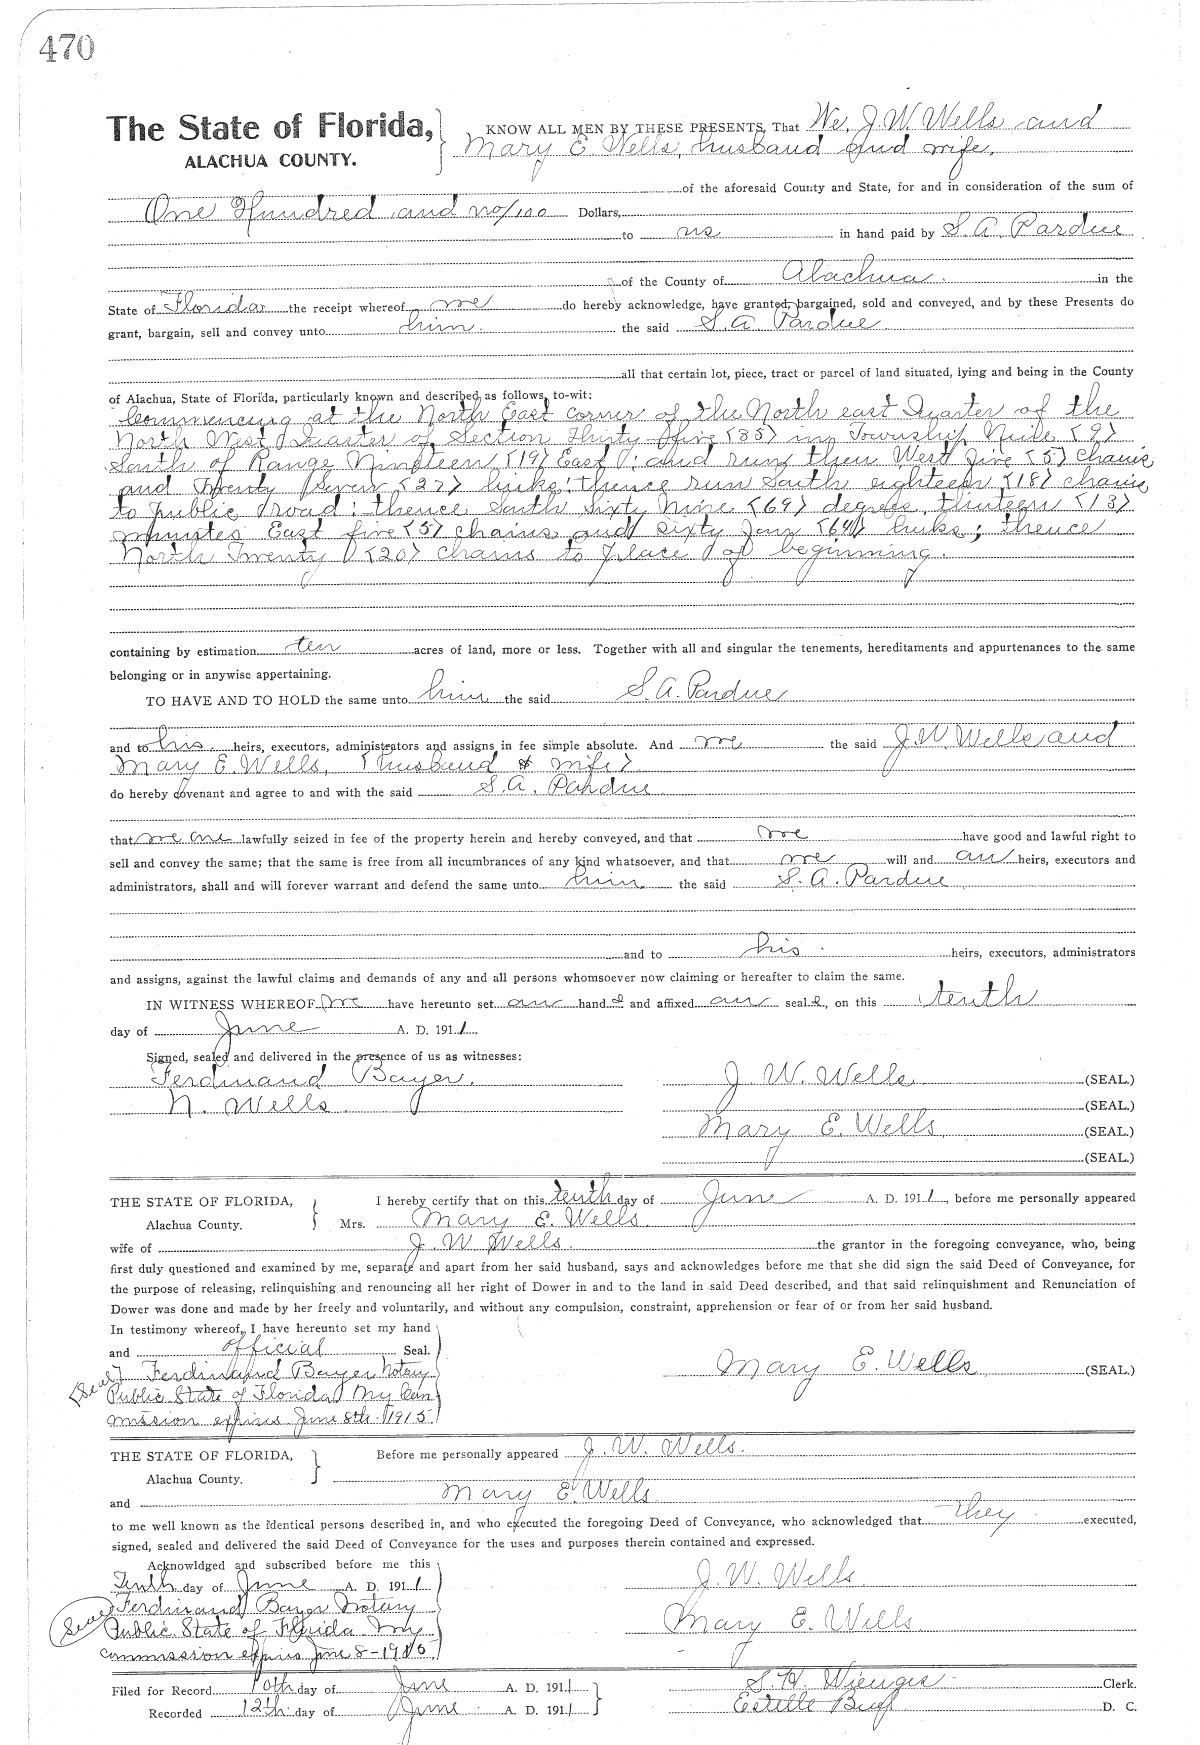 470
The State of Florida, KNOW ALL MEN BY THESE PRESENTS, That We, J. W. Wells and
ALACHUA COUNTY. Mary E. Wells, husband and wife,
of the aforesaid County and State, for and in consideration of the sum of
One Hundred and no/100 Dollars,
to us in hand paid by S. A. Pardue
of the County of Alachua. in the
State of Florida the receipt whereof we do hereby acknowledge, have granted, bargained, sold and conveyed, and by these Presents do
grant, bargain, sell and convey unto him. the said S. A. Pardue
all that certain lot, piece, tract or parcel of land situated, lying and being in the County
of Alachua, State of Florida, particularly known and described as follows, to-wit:
Commencing at the North East corner of the North east Quarter of the
North West Quarter of Section Thirty five (35) in Township Nine (9)
South of Range Nineteen (19) East; and run then West five (5) chains
and Twenty Seven (27) links; thence run South eighteen (18) chains
to public road; thence South Sixty Nine (69) degrees, thirteen (13)
minutes East five (5) chains and sixty four (64) links; thence
North Twenty (20) chains to place of beginning.
containing by estimation ten acres of land, more or less. Together with all and singular the tenements, hereditaments and appurtenances to the same
belonging or in anywise appertaining.
TO HAVE AND TO HOLD the same unto him the said S. A. Pardue
and to his heirs, executors, administrators and assigns in fee simple absolute. And we the said J. W. Wells and
Mary E. Wells, (husband & wife)
do hereby covenant and agree to and with the said S. A. Pardue
that we are lawfully seized in fee of the property herein and hereby conveyed, and that we have good and lawful right to
sell and convey the same; that the same is free from all incumbrances of any kind whatsoever, and that we will and our heirs, executors and
administrators, shall and will forever warrant and defend the same unto him the said S. A. Pardue
and to his heirs, executors, administrators
and assigns, against the lawful claims and demands of any and all persons whomsoever now claiming or hereafter to claim the same.
IN WITNESS WHEREOF, we have hereunto set our hands and affixed our seals, on this tenth
day of June A. D. 1911.
Signed, sealed and delivered in the presence of us as witnesses:
Ferdinand Bayer. J. W. Wells (SEAL.)
N. Wells. (SEAL.)
Mary E. Wells (SEAL.)
(SEAL.)
THE STATE OF FLORIDA, I hereby certify that on this tenth day of June A. D. 1911, before me personally appeared
Alachua County. Mrs. Mary E. Wells
wife of J. W. Wells. the grantor in the foregoing conveyance, who, being
first duly questioned and examined by me, separate and apart from her said husband, says and acknowledges before me that she did sign the said Deed of Conveyance, for
the purpose of releasing, relinquishing and renouncing all her right of Dower in and to the land in said Deed described, and that said relinquishment and Renunciation of
Dower was done and made by her freely and voluntarily, and without any compulsion, constraint, apprehension or fear of or from her said husband.
In testimony whereof, I have hereunto set my hand
and official Seal.
[Seal] Ferdinand Bayer Notary Mary E. Wells (SEAL.)
Public State of Florida My Com
mission expires June 8th 1915.
THE STATE OF FLORIDA, Before me personally appeared J. W. Wells.
Alachua County.
and Mary E. Wells
to me well known as the identical persons described in, and who executed the foregoing Deed of Conveyance, who acknowledged that they executed,
signed, sealed and delivered the said Deed of Conveyance for the uses and purposes therein contained and expressed.
Acknowldged and subscribed before me this
Tenth day of June A. D. 1911 J. W. Wells
(Seal) Ferdinand Bayer Notary
Public State of Florida My Mary E. Wells
commission expires June 8-1915.
Filed for Record 10th day of June A. D. 1911 S. H. Wienges Clerk.
Recorded 12th day of June A. D. 1911 Estelle D. C.